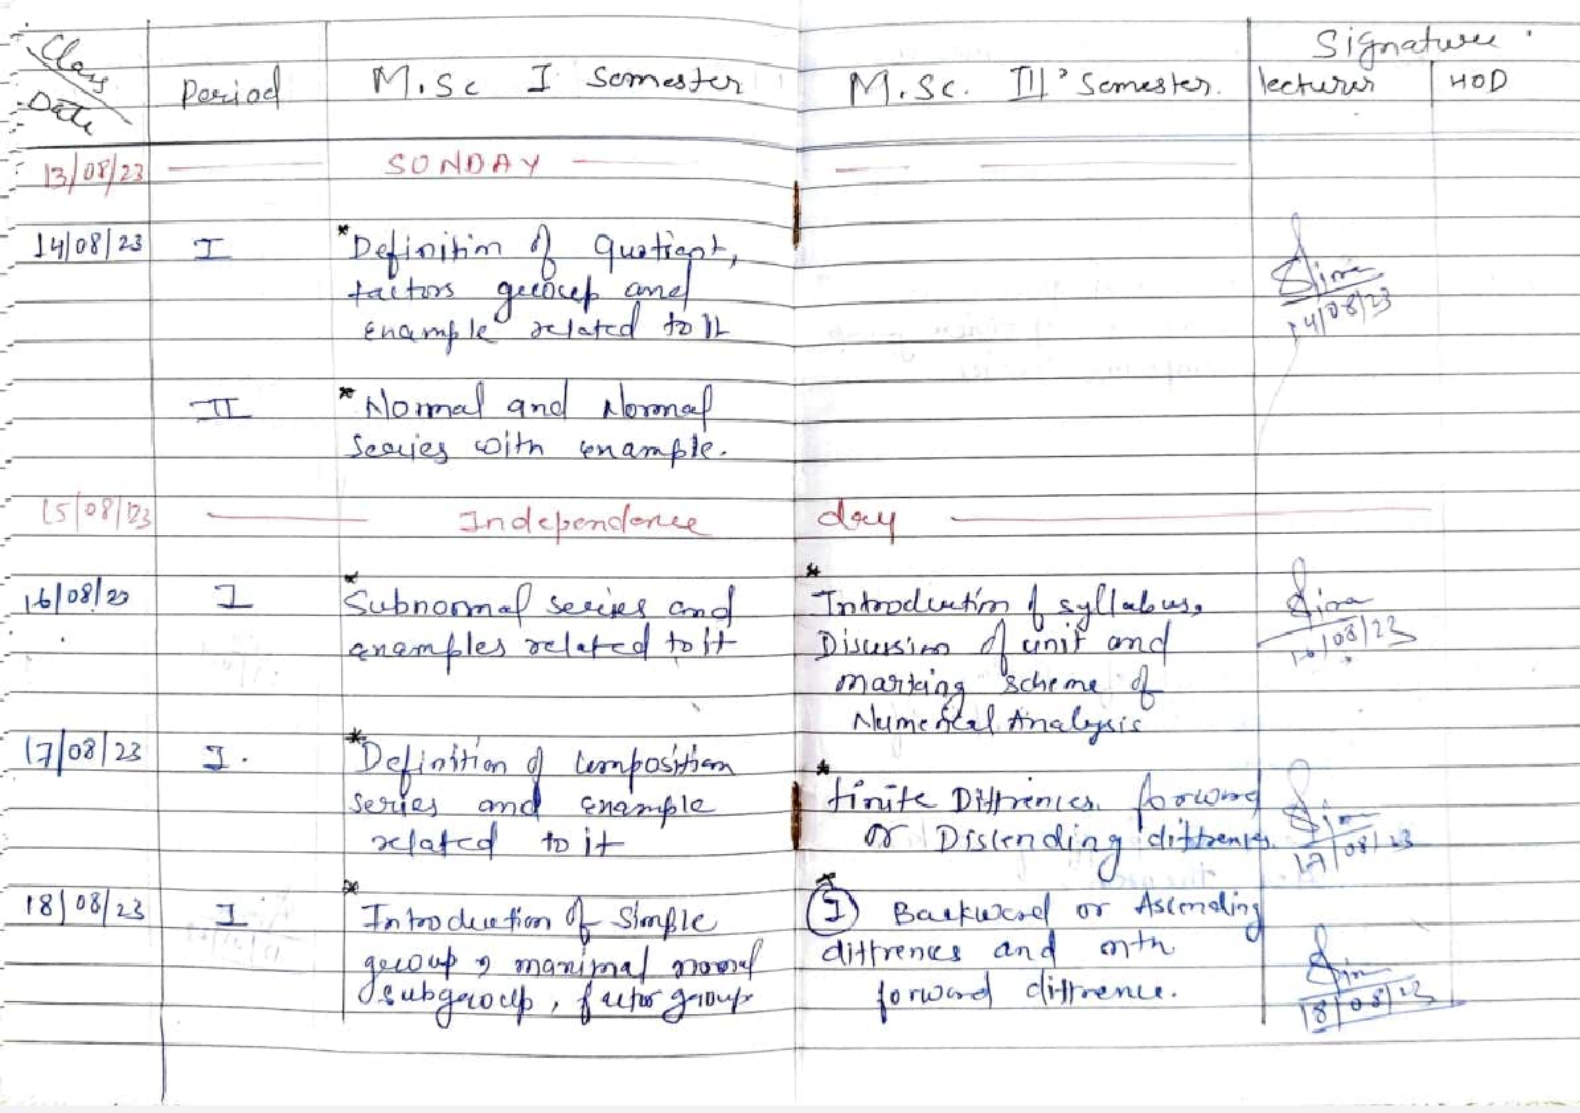 Signature
Class
Date
Period
M.Sc I Semester
M.Sc. III Semester.
lecturer
HOD
13/08/23
SUNDAY
14/08/23
I
* Definition of Quotient,
factors group and
Example related to it
14/08/23
II
* Normal and Normal
Series with example.
15/08/23
Independence day
16/08/23
I
* Subnormal series and
examples related to it
* Introduction of syllabus,
Discussion of unit and
marking scheme of
Numerical Analysis
16/08/23
17/08/23
I.
* Definition of Composition
series and example
related to it
* finite Diffrences. forword
or Discending diffrences.
17/08/23
18/08/23
I
* Introduction of Simple
group, maximal normal
subgroup, factor group
* I Backword or Ascending
diffrences and nth
forword diffrence.
18/08/23